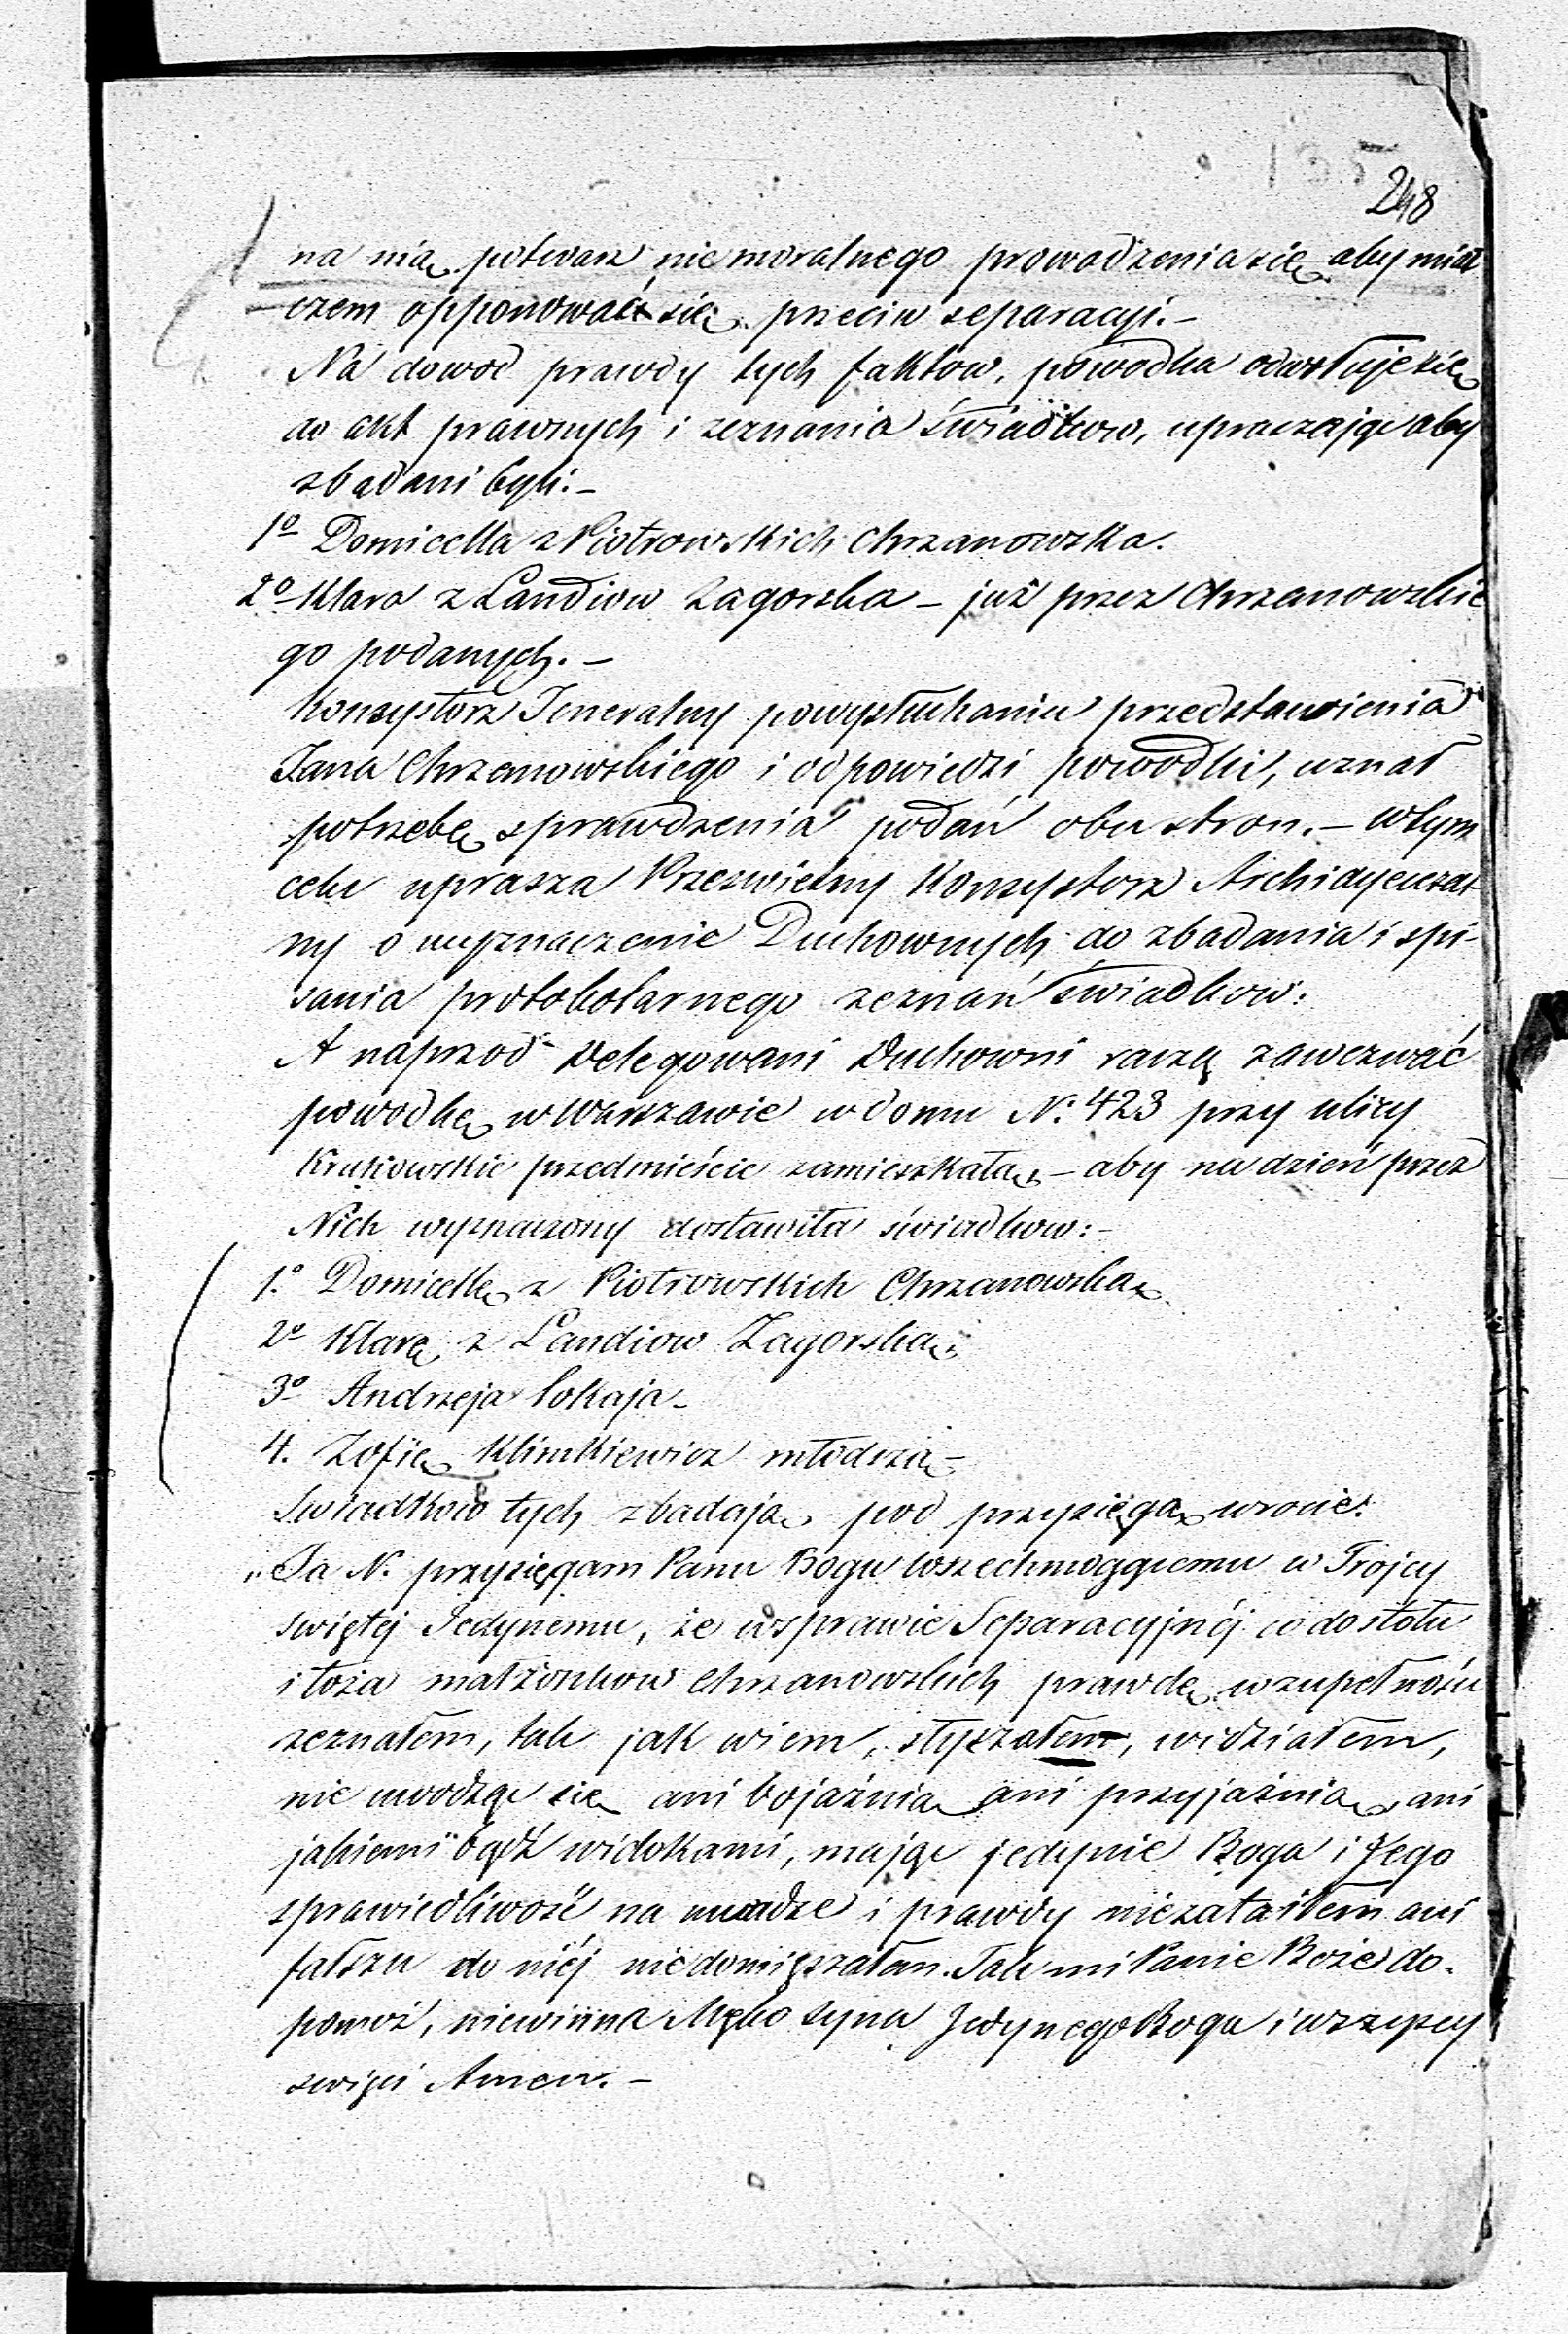 135
248
na nią potwarz niemoralnego prowadzenia się aby miał
czem opponować się przeciw separacyi.—
Na dowod prawdy tych faktow, powodka odwołuje się
do akt prawnych i zeznania świadkow, upraszając aby
zbadani byli:—
1o Domicella z Piotrowskich Chrzanowska.
2o Klara z Landiow Zagorska — już przez Chrzanowskie
go podanych.—
Konsystorz Jeneralny po wysłuchaniu przedstawienia
Jana Chrzanowskiego i odpowiedzi powodki, uznał
potrzebę sprawdzenia podań obu stron.— W tym
celu uprasza Prześwietny Konsystorz Archidyecezal
ny o wyznaczenie Duchownych do zbadania i spi-
sania protokolarnego zeznań świadkow:
A naprzod Delegowani Duchowni raczą zawezwać
powodkę w Warszawie w domu N. 423 przy ulicy
Krakowskie przedmieście zamieszkałą — aby na dzień przez
Nich wyznaczony dostawiła świadkow:—
1o Domicellę z Piotrowskich Chrzanowską
2o Klarę z Landiow Zagorską
3o Andrzeja lokaja —
4. Zofię Klimkiewicz młodszą —
Swiadkow tych zbadają pod przysięgą w rocie:
„Ja N. przysięgam Panu Bogu wszechmogącemu w Trojcy
swiętej Jedynemu, że w sprawie Separacyjnéj co do stołu
i łoża małżonkow Chrzanowskich prawdę w zupełności
zeznałem, tak jak wiem, słyszałem, widziałem,
nie uwodząc się ani bojaźnią ani przyjaźnią ani
jakiemi bądź widokami, mając jedynie Boga i Jego
sprawiedliwość na uwadze i prawdy nie zataiłem ani
fałszu do niéj nie domięszałem. Tak mi Panie Boże do-
pomoż, niewinna Męko syna Jedynego Boga i wszyscy
swięci Amen.—